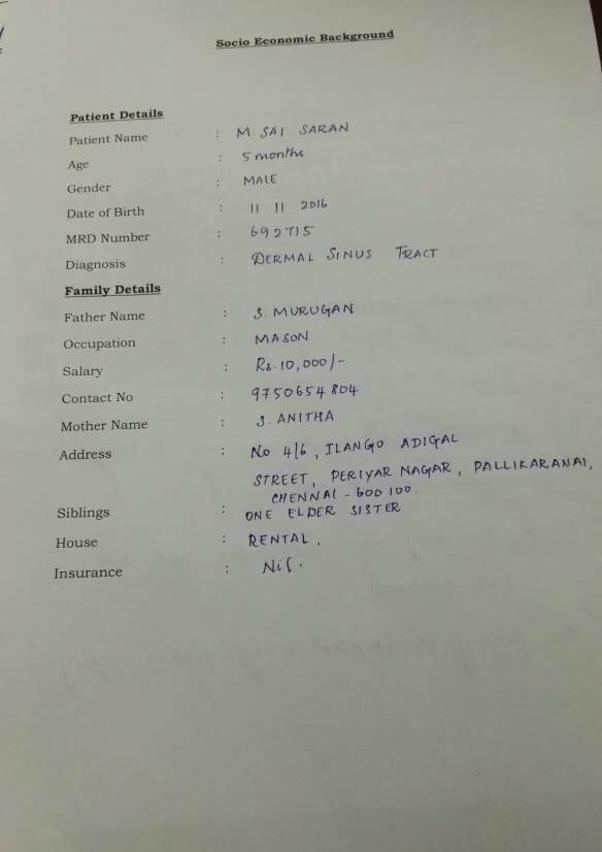 Socio Economic Background
Patient Details
Patient Name : M SAI SARAN
Age : 5 months
Gender : MALE
Date of Birth : 11 11 2016
MRD Number : 692715
Diagnosis : DERMAL SINUS TRACT
Family Details
Father Name : S. MURUGAN
Occupation : MASON
Salary : Rs. 10,000/-
Contact No : 9750654804
Mother Name : S. ANITHA
Address : No 4/6, ILANGO ADIGAL
STREET, PERIYAR NAGAR, PALLIKARANAI,
CHENNAI - 600 100.
Siblings : ONE ELDER SISTER
House : RENTAL.
Insurance : Nil.